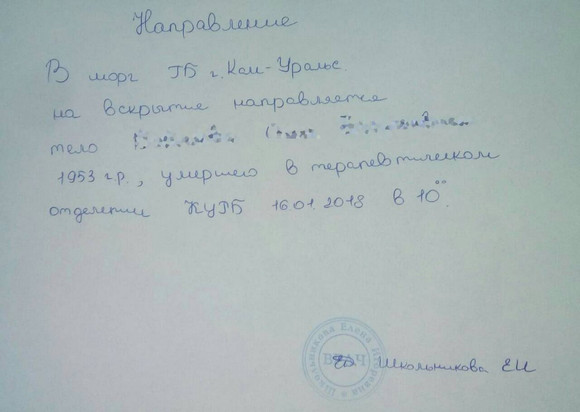 Направление
В морг ГБ г. Кам-Уральс
на вскрытие направляется
тело
1953 г.р., умершего в терапевтическом
отделении КУГБ 16.01.2018 в 10⁰⁰.
Школьникова Елена Игоревна
ВРАЧ
Школьникова ЕИ